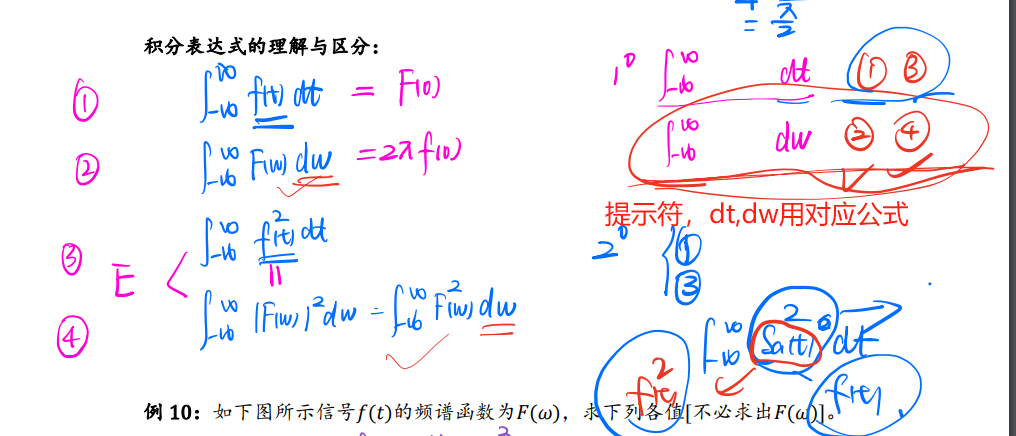 = π/2
积分表达式的理解与区分：
① ∫_{-∞}^{∞} f(t) dt = F(0)
② ∫_{-∞}^{∞} F(ω) dω = 2πf(0)
③ ∫_{-∞}^{∞} f²(t) dt
E <
④ ∫_{-∞}^{∞} |F(ω)|² dω = ∫_{-∞}^{∞} F²(ω) dω
1° ∫_{-∞}^{∞} dt ① ③
∫_{-∞}^{∞} dω ② ④
提示符，dt,dw用对应公式
2° { ① ③
∫_{-∞}^{∞} Sa²(t) dt
f²(t) f(t)
例 10：如下图所示信号f(t)的频谱函数为F(ω)，求下列各值[不必求出F(ω)]。